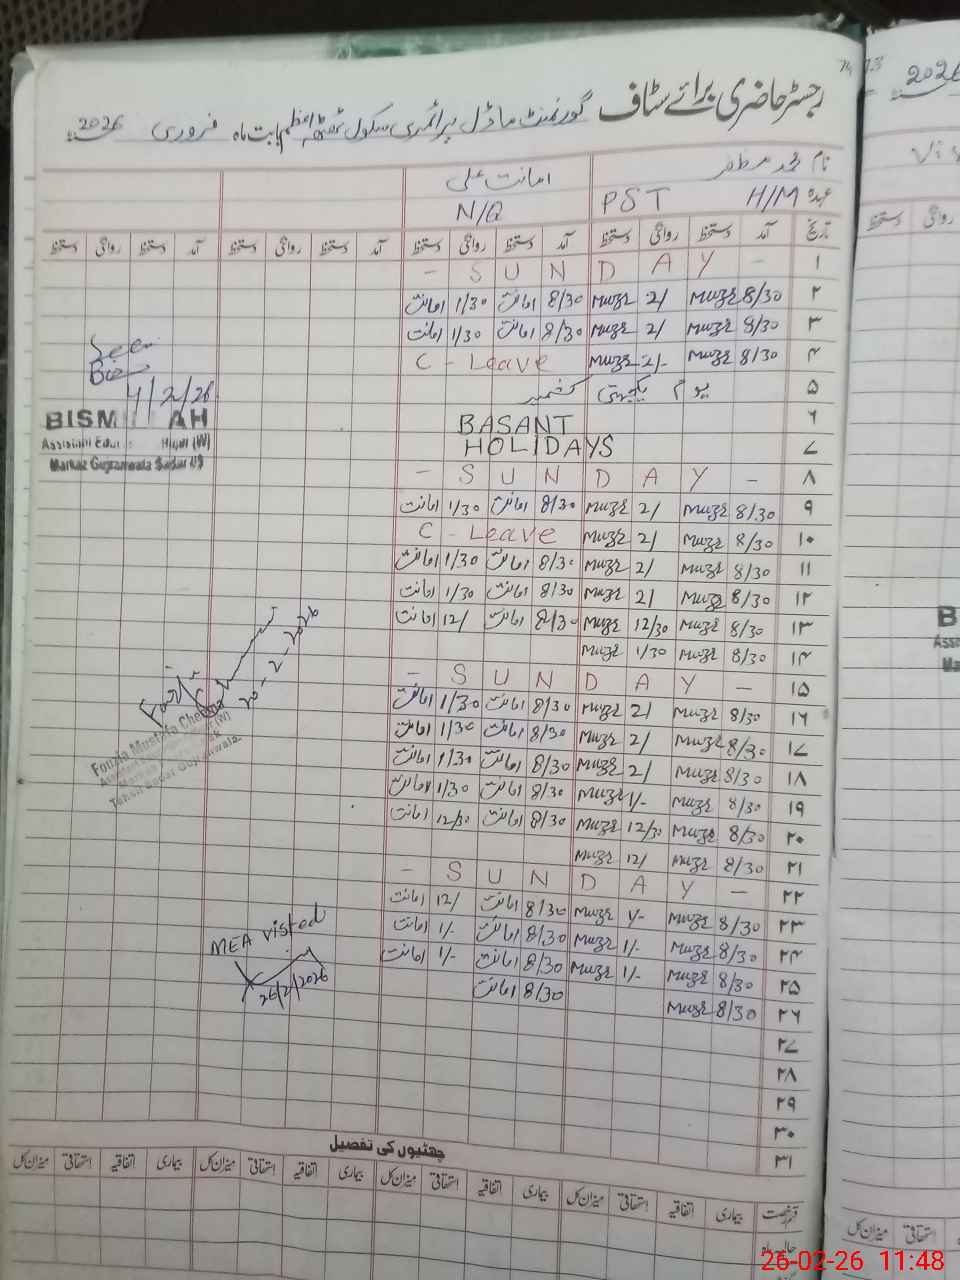 رجسٹر حاضری برائے سٹاف
گورنمنٹ ماڈل پرائمری سکول اعظم بابت ماہ فروری 2026
نام محمد مظفر امانت علی
عہدہ H/M PST N/Q
تاریخ آمد دستخط روانگی دستخط آمد دستخط روانگی دستخط آمد دستخط روانگی دستخط آمد دستخط روانگی دستخط
۱ - S U N D A Y -
۲ 8/30 muzr 2/ muzr 8/30 امانت 1/30 امانت
۳ 8/30 muzr 2/ muzr 8/30 امانت 1/30 امانت
۴ 8/30 muzr 2/- muzr C - Leave
۵ یوم یکجہتی کشمیر
۶ BASANT
۷ HOLIDAYS
۸ - S U N D A Y -
۹ 8/30 muzr 2/ muzr 8/30 امانت 1/30 امانت
۱۰ 8/30 muzr 2/ muzr C - Leave
۱۱ 8/30 muzr 2/ muzr 8/30 امانت 1/30 امانت
۱۲ 8/30 muzr 2/ muzr 8/30 امانت 1/30 امانت
۱۳ 8/30 muzr 12/30 muzr 8/30 امانت 12/ امانت
۱۴ 8/30 muzr 1/30 muzr
۱۵ - S U N D A Y -
۱۶ 8/30 muzr 2/ muzr 8/30 امانت 1/30 امانت
۱۷ 8/30 muzr 2/ muzr 8/30 امانت 1/30 امانت
۱۸ 8/30 muzr 2/ muzr 8/30 امانت 1/30 امانت
۱۹ 8/30 muzr 1/- muzr 8/30 امانت 1/30 امانت
۲۰ 8/30 muzr 12/30 muzr 8/30 امانت 12/30 امانت
۲۱ 8/30 muzr 12/ muzr
۲۲ - S U N D A Y -
۲۳ 8/30 muzr 1/- muzr 8/30 امانت 12/ امانت
۲۴ 8/30 muzr 1/- muzr 8/30 امانت 1/- امانت
۲۵ 8/30 muzr 1/- muzr 8/30 امانت 1/- امانت
۲۶ 8/30 muzr 8/30 امانت
۲۷
۲۸
۲۹
۳۰
۳۱
Seen
4/2/26
BISM AH
Markaz Gujranwala Sadar
20-2-2026
Fouzia Mustafa Cheema
Tehsil Sadar Gujranwala.
MEA visted
26/2/2026
چھٹیوں کی تفصیل
قسم رخصت بیماری اتفاقیہ استحقاقی میزان کل بیماری اتفاقیہ استحقاقی میزان کل بیماری اتفاقیہ استحقاقی میزان کل بیماری اتفاقیہ استحقاقی میزان کل
حالیہ ماہ
2026
دستخط روانگی
میزان کل استحقاقی
26-02-26 11:48